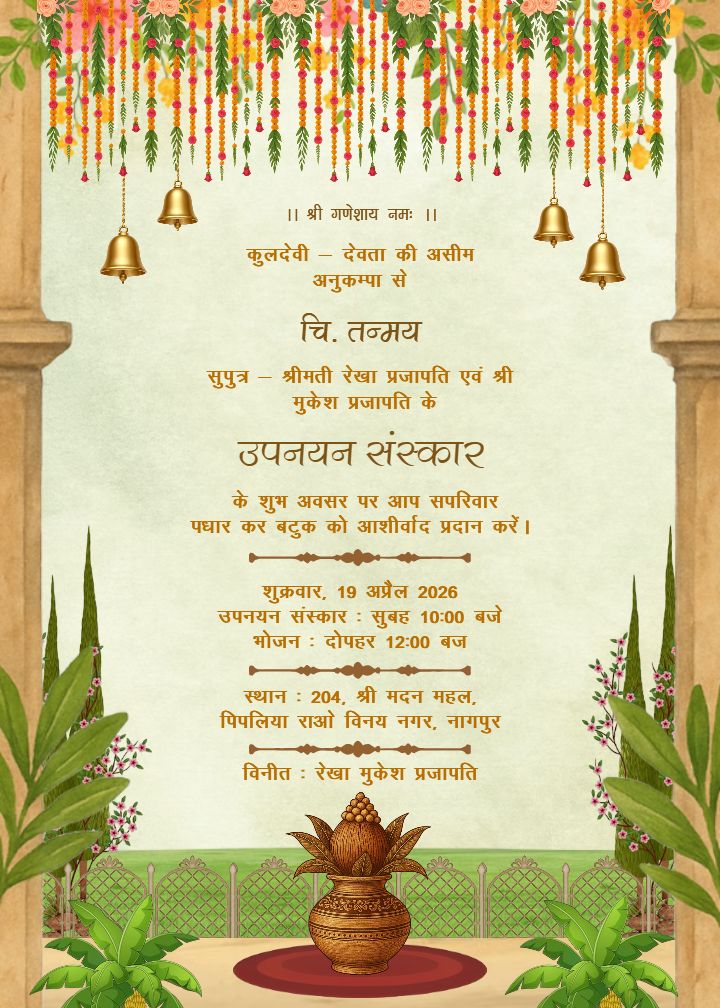 ।। श्री गणेशाय नमः ।।
कुलदेवी – देवता की असीम
अनुकम्पा से
चि. तन्मय
सुपुत्र – श्रीमती रेखा प्रजापति एवं श्री
मुकेश प्रजापति के
उपनयन संस्कार
के शुभ अवसर पर आप सपरिवार
पधार कर बटुक को आशीर्वाद प्रदान करें।
शुक्रवार, 19 अप्रैल 2026
उपनयन संस्कार : सुबह 10:00 बजे
भोजन : दोपहर 12:00 बज
स्थान : 204, श्री मदन महल,
पिपलिया राओ विनय नगर, नागपुर
विनीत : रेखा मुकेश प्रजापति